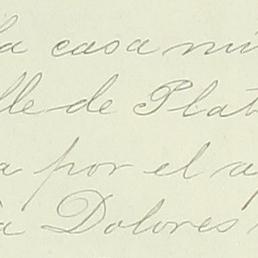 la casa nú
lle de Plat
a por el a
a Dolores